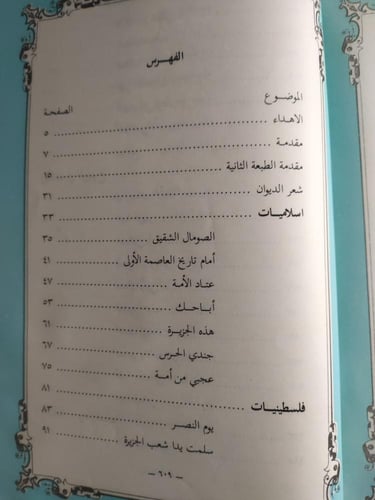 الفهرس
الموضوع
الصفحة
الاهداء ........ ٥
مقدمة ........ ٧
مقدمة الطبعة الثانية ........ ١٥
شعر الديوان ........ ٣١
اسلاميات ........ ٣٣
الصومال الشقيق ........ ٣٥
أمام تاريخ العاصمة الأولى ........ ٤١
عناد الأمة ........ ٤٧
أباحك ........ ٥٣
هذه الجزيرة ........ ٦١
جندي الحرس ........ ٦٧
عجبي من أمة ........ ٧٥
فلسطينيات ........ ٨١
يوم النصر ........ ٨٣
سلمت يدا شعب الجزيرة ........ ٩١
— ٦٠٩ —